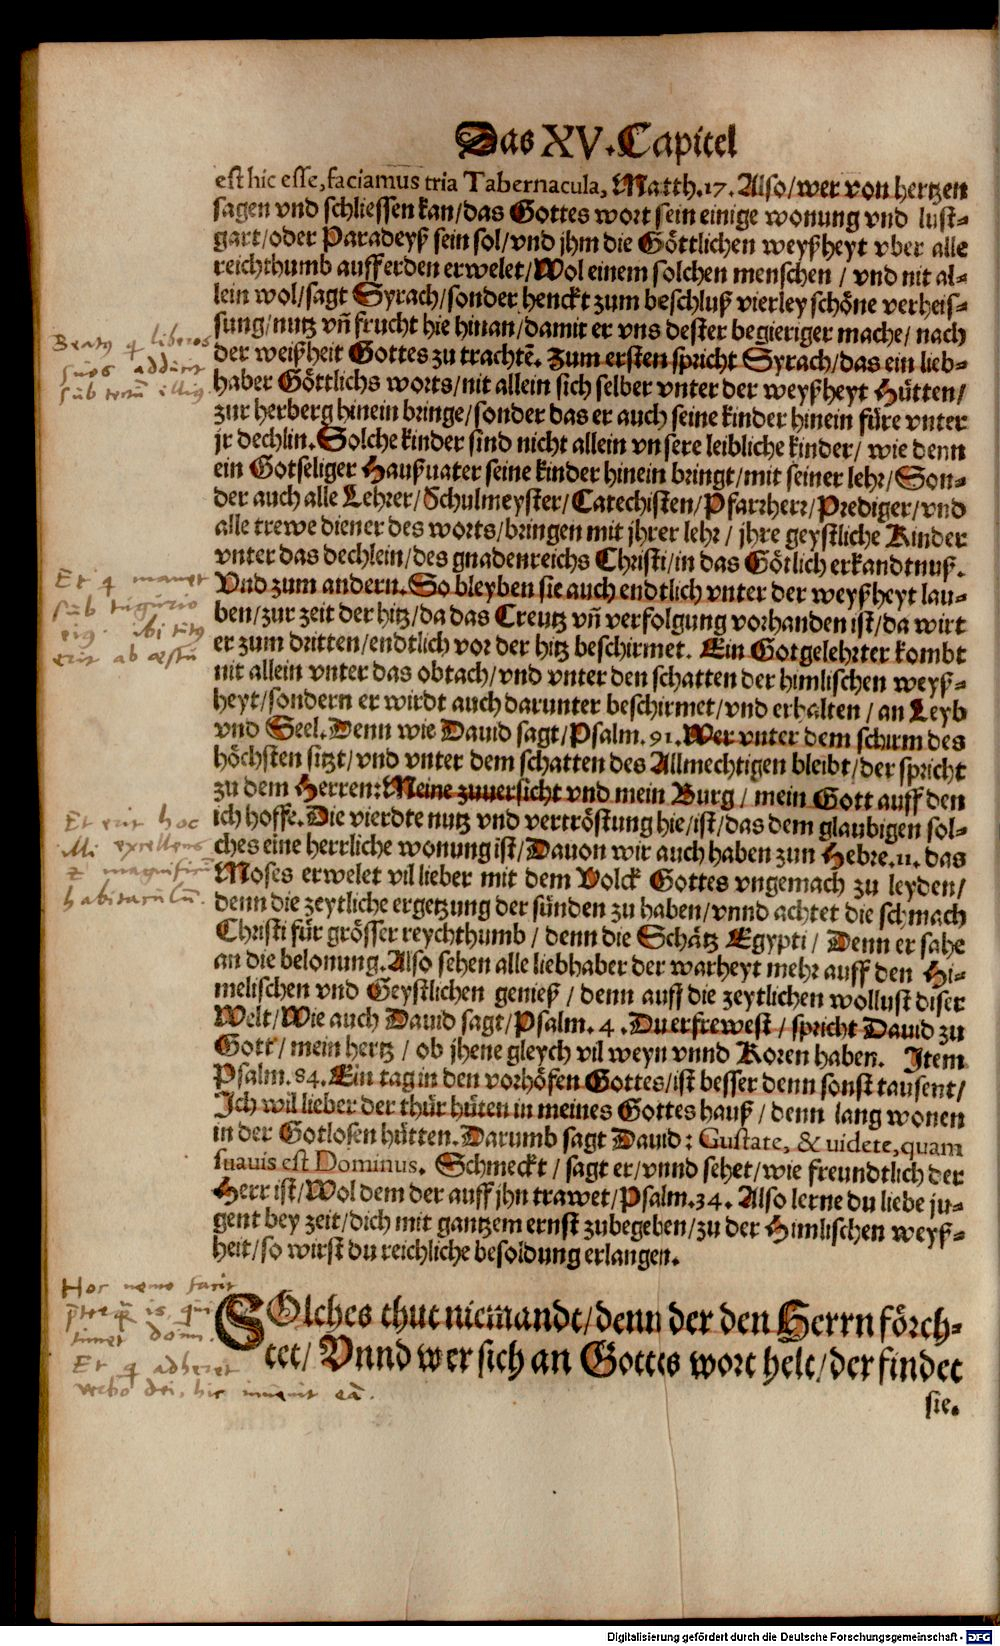 Das XV. Capitel
est hic esse, faciamus tria Tabernacula, Matth.17. Also/wer von hertzen
sagen vnd schliessen kan/das Gottes wort sein einige wonung vnd lust-
gart/oder Paradeyß sein sol/vnd jhm die Göttlichen weyßheyt vber alle
reichthumb auff erden erwelet/Wol einem solchen menschen / vnd nit al-
lein wol/sagt Syrach/sonder henckt zum beschluß vierley schöne verheis-
sung/nutz vñ frucht hie hinan/damit er vns dester begieriger mache/ nach
Beatꝰ q liberos
suos addūcit
sub tectū illiꝰ.
der weißheit Gottes zu trachtē. Zum ersten spricht Syrach/das ein lieb-
haber Göttlichs worts/nit allein sich selber vnter der weyßheyt Hütten/
zur herberg hinein bringe/sonder das er auch seine kinder hinein füre vnter
jr dechlin. Solche kinder sind nicht allein vnsere leibliche kinder/ wie denn
ein Gotseliger Haußuater seine kinder hinein bringt/mit seiner lehr/Son-
der auch alle Lehrer/ Schulmeyster/Catechisten/Pfarrherr/Prediger/vnd
alle trewe diener des worts/bringen mit jhrer lehr / jhre geystliche Kinder
vnter das dechlein/des gnadenreichs Christi/in das Götlich erkandtnuß.
Et q manet
sub tugurio
eiꝰ. ibi tutꝰ
erit ab æstu
Vnd zum andern. So bleyben sie auch endtlich vnter der weyßheyt lau-
ben/zur zeit der hitz/da das Creutz vñ verfolgung vorhanden ist/da wirt
er zum dritten/endtlich vor der hitz beschirmet. Ein Gotgelehrter kombt
nit allein vnter das obtach/vnd vnter den schatten der himlischen weyß-
heyt/sondern er wirdt auch darunter beschirmet/vnd erhalten / an Leyb
vnd Seel. Denn wie Dauid sagt/Psalm. 91. Wer vnter dem schirm des
höchsten sitzt/vnd vnter dem schatten des Allmechtigen bleibt/der spricht
zu dem Herren: Meine zuuersicht vnd mein Burg / mein Gott auff den
Et erit hoc
illi excellens
& magnificū
habitaculū.
ich hoffe. Die vierdte nutz vnd vertröstung hie/ist/das dem glaubigen sol-
ches eine herrliche wonung ist/Dauon wir auch haben zun Hebre.11. das
Moses erwelet vil lieber mit dem Volck Gottes vngemach zu leyden/
denn die zeytliche ergetzung der sünden zu haben/vnnd achtet die schmach
Christi für grösser reychthumb / denn die Schätz Egypti / Denn er sahe
an die belonung. Also sehen alle liebhaber der warheyt mehr auff den Hi-
melischen vnd Geystlichen genieß / denn auff die zeytlichen wollust diser
Welt/Wie auch Dauid sagt/Psalm. 4. Du erfrewest / spricht Dauid zu
Gott / mein hertz / ob jhene gleych vil weyn vnnd Koren haben. Item
Psalm. 84. Ein tag in den vorhöfen Gottes/ist besser denn sonst tausent/
Ich wil lieber der thür hüten in meines Gottes hauß / denn lang wonen
in der Gotlosen hütten. Darumb sagt Dauid: Gustate, & uidete, quam
suauis est Dominus. Schmeckt / sagt er/vnnd sehet/wie freundtlich der
Herr ist/Wol dem der auff jhn trawet/Psalm.34. Also lerne du liebe ju-
gent bey zeit/dich mit gantzem ernst zubegeben/zu der Himlischen weyß-
heit/so wirst du reichliche besoldung erlangen.
Hoc nemo facit
p̄terq̄ is, qui
timet dom̄.
Et q adheret
verbo dei, hic inuenit eā.
SOlches thut niemandt/denn der den Herrn förch-
tet/ Vnnd wer sich an Gottes wort helt/der findet
sie.
Digitalisierung gefördert durch die Deutsche Forschungsgemeinschaft - DFG